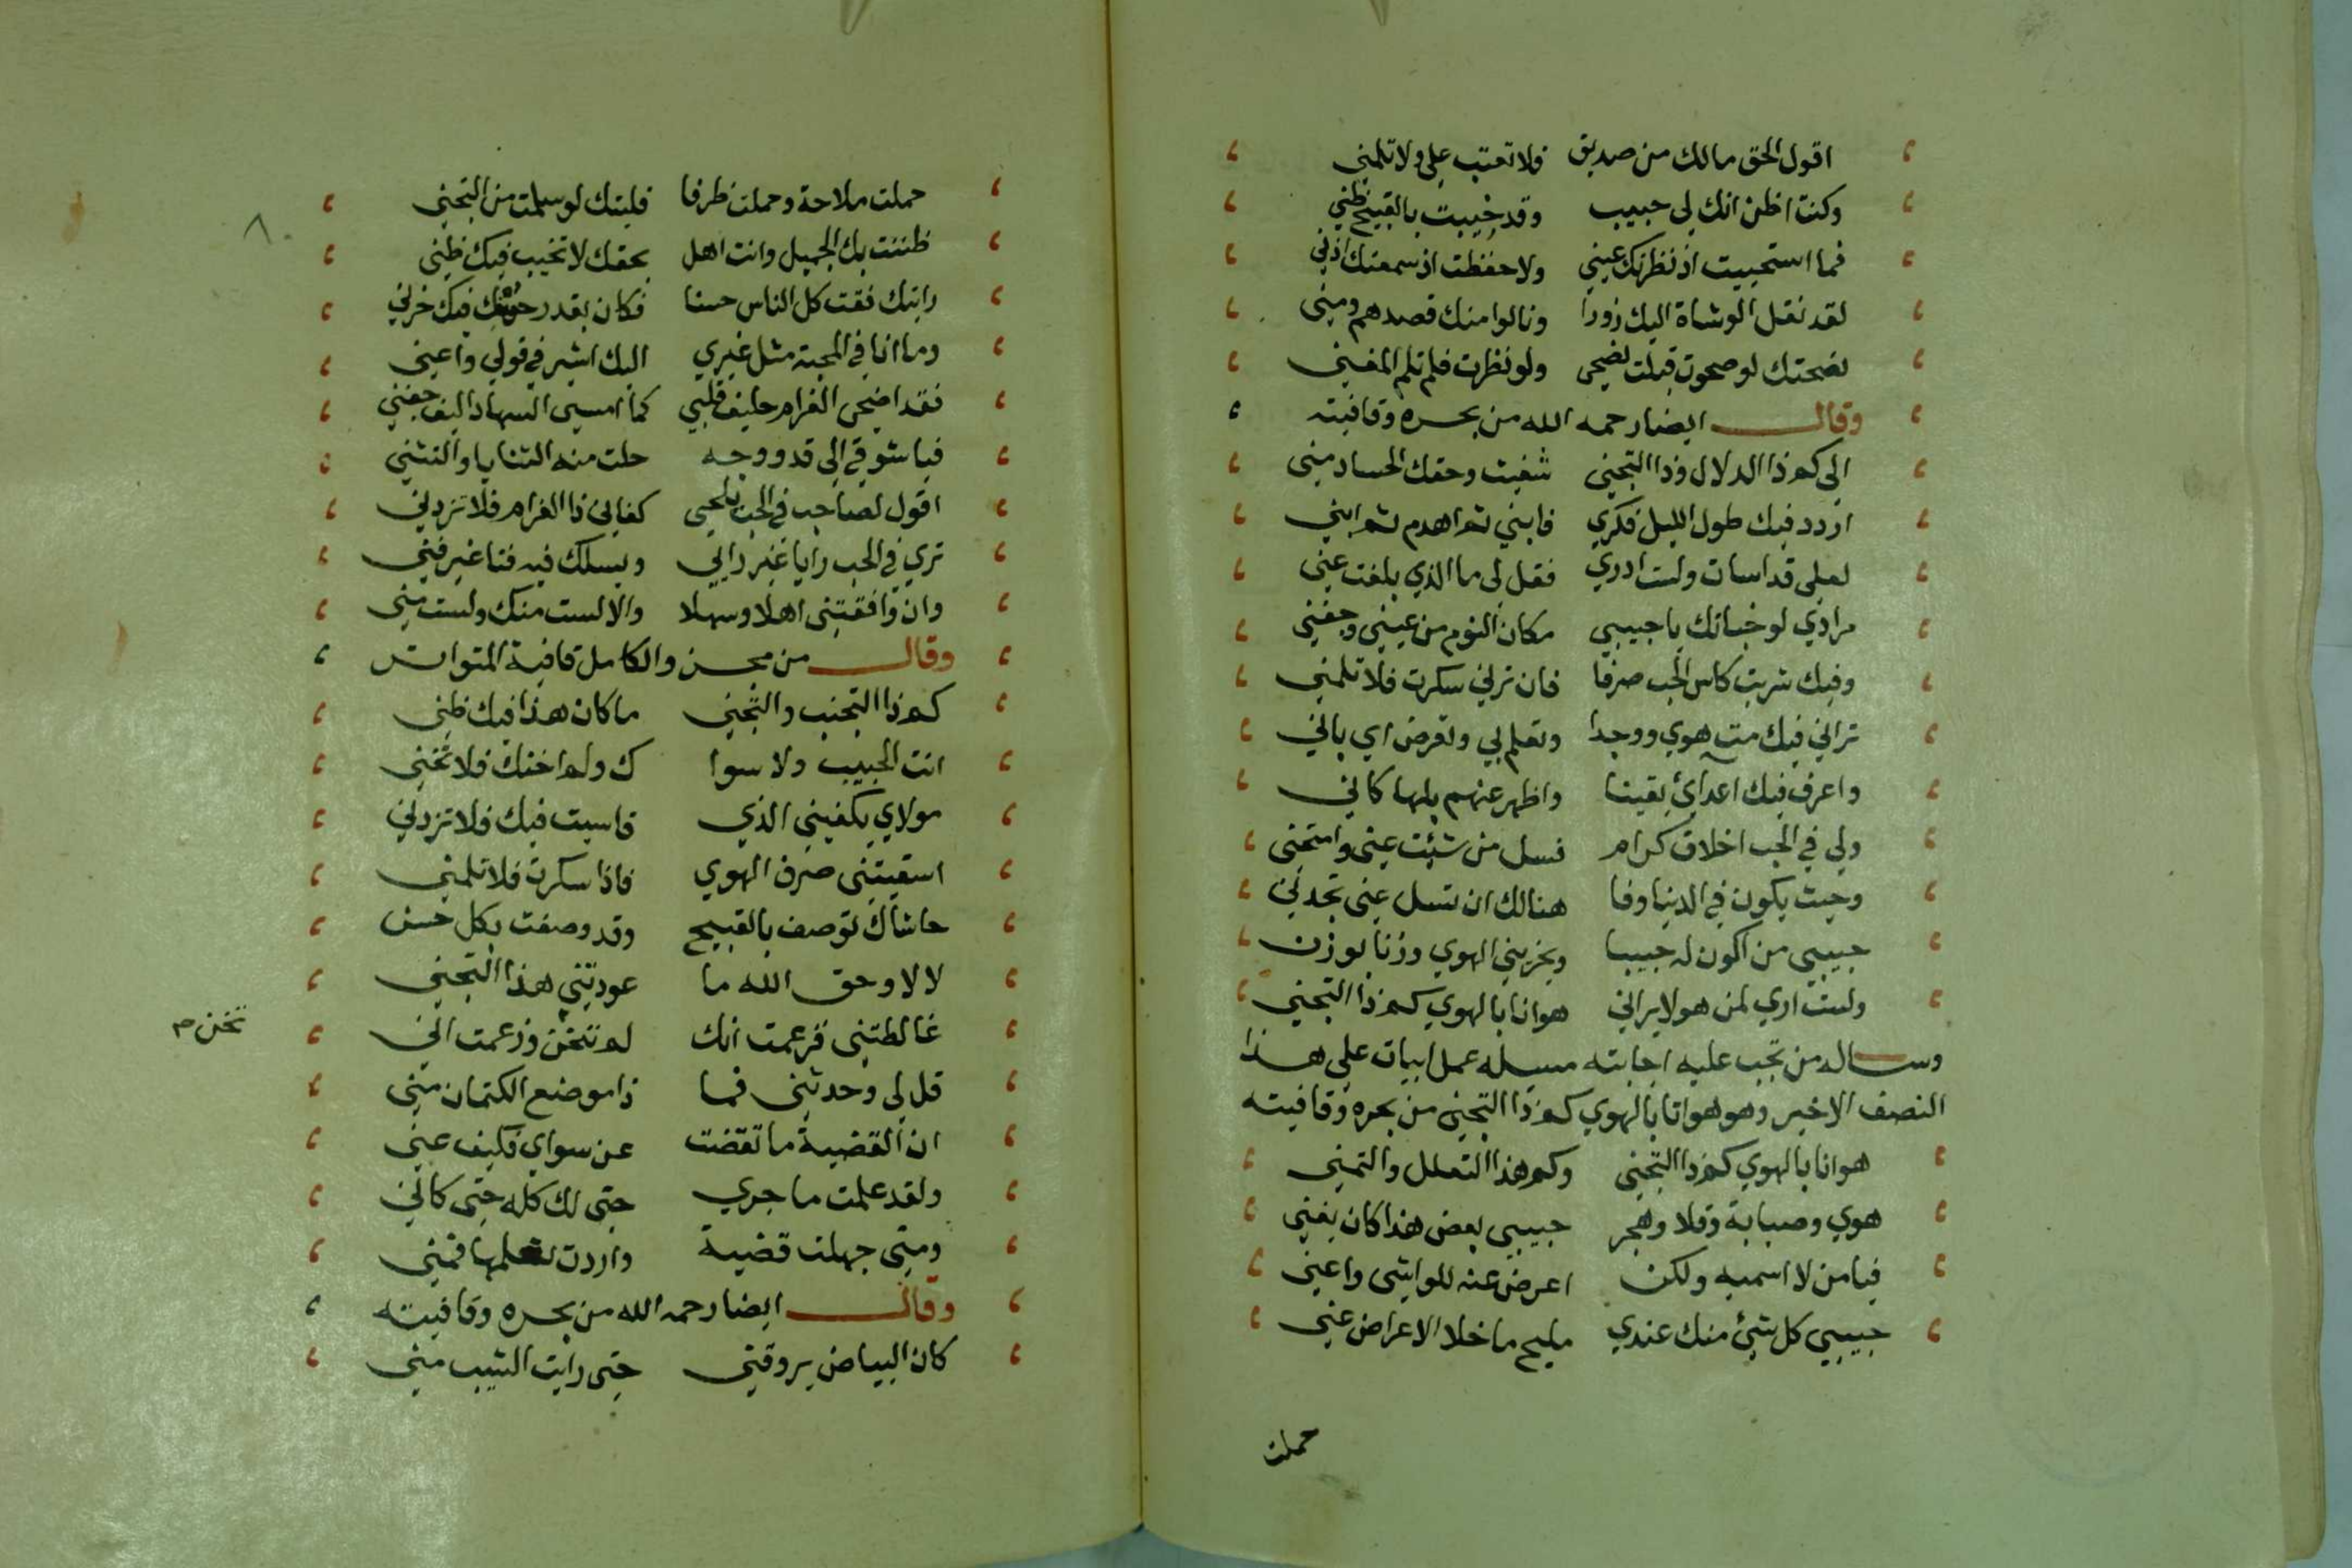 اقول الحق مالك من صديق فلا تعتب علي ولا تلمني
وكنت اظن انك لي حبيب وقد خيبت بالقبيح ظني
فما استحييت اذ نظرتك عيني ولا حفظت اذ سمعتك اذني
لقد نقل الوشاة اليك زورا ونالوا منك قصدهم ومني
نصحتك لو صحوت قبلت نصحي ولو نظرت فلم تلم المغني
وقال ايضا رحمه الله من بحره وقافيته
الي كم ذا الدلال وذا التجني شفيت وحقك الحساد مني
اردد فيك طول الليل فكري فابني ثم اهدم ثم ابني
لعلي قد اسات ولست ادري فقل لي ما الذي بلغت عني
مرادي لو خبأتك يا حبيبي مكان النوم من عيني وجفني
وفيك شربت كاس الحب صرفا فان ترني سكرت فلا تلمني
تراني فيك مت هوي ووجدا وتعلم بي وتعرض اي باني
واعرف فيك اعدائ يقينا واظهر عنهم بلها كاني
ولي في الحب اخلاق كرام فسل من شئت عني وامتحني
وحيث يكون في الدنيا وفا هنالك ان تسل عني تجدني
حبيبي من اكون له حبيبا ويجزيني الهوي وزنا بوزن
ولست اري لمن هو لا يراني هوانا بالهوي كم ذا التجني
وساله من تجب عليه اجابته مسيله عمل ابيات علي هذا
النصف الاخير وهو هوانا بالهوي كم ذا التجني من بحره وقافيته
هوانا بالهوي كم ذا التجني وكم هذا التعلل والتمني
هوي وصبابة وقلا وهجر حبيبي بعض هذا كان يغني
فيا من لا اسميه ولكن اعرض عنه للواشي واعني
حبيبي كل شئ منك عندي مليح ما خلا الاعراض عني
حملت
٨٠
حملت ملاحة وحملت ظرفا فليتك لو سلمت من التجني
ظننت بك الجميل وانت اهل بحقك لا تخيب فيك ظني
رايتك فقت كل الناس حسنا فكان بقدر حسنك فيك حزني
وما انا في المحبة مثل غيري اليك اشير في قولي واعني
فقد اضحي الغرام حليف قلبي كما امسي السهاد اليف جفني
فيا شوقي الي قد ووجه حلت منه الثنايا والتثني
اقول لصاحب في الحب يلحي كفاني ذا الغرام فلا تزدني
تري في الحب رايا غير رايي ويسلك فيه فنا غير فني
وان وافقتني اهلا وسهلا والا لست منك ولست مني
وقال من مجزو الكامل قافية المتواتر
كم ذا التجنب والتجني ما كان هذا فيك ظني
انت الحبيب ولا سوا ك ولم اخنك فلا تخني
مولاي يكفيني الذي قاسيت فيك فلا تزدني
اسقيتني صرف الهوي فاذا سكرت فلا تلمني
حاشاك توصف بالقبيح وقد وصفت بكل حسن
لا لا وحق الله ما عودتني هذا التجني
غالطتني فزعمت انك لم تخن وزعمت اني
تخن م
قل لي وحدثني فما ذا موضع الكتمان مني
ان القضية ما تقضت عن سواي فكيف عني
ولقد علمت ما جري حتي لك كله حتي كاني
ومتي جهلت قضية واردت تعلمها فمني
وقال ايضا رحمه الله من بحره وقافيته
كان البياض يروقني حتي رايت الشيب مني